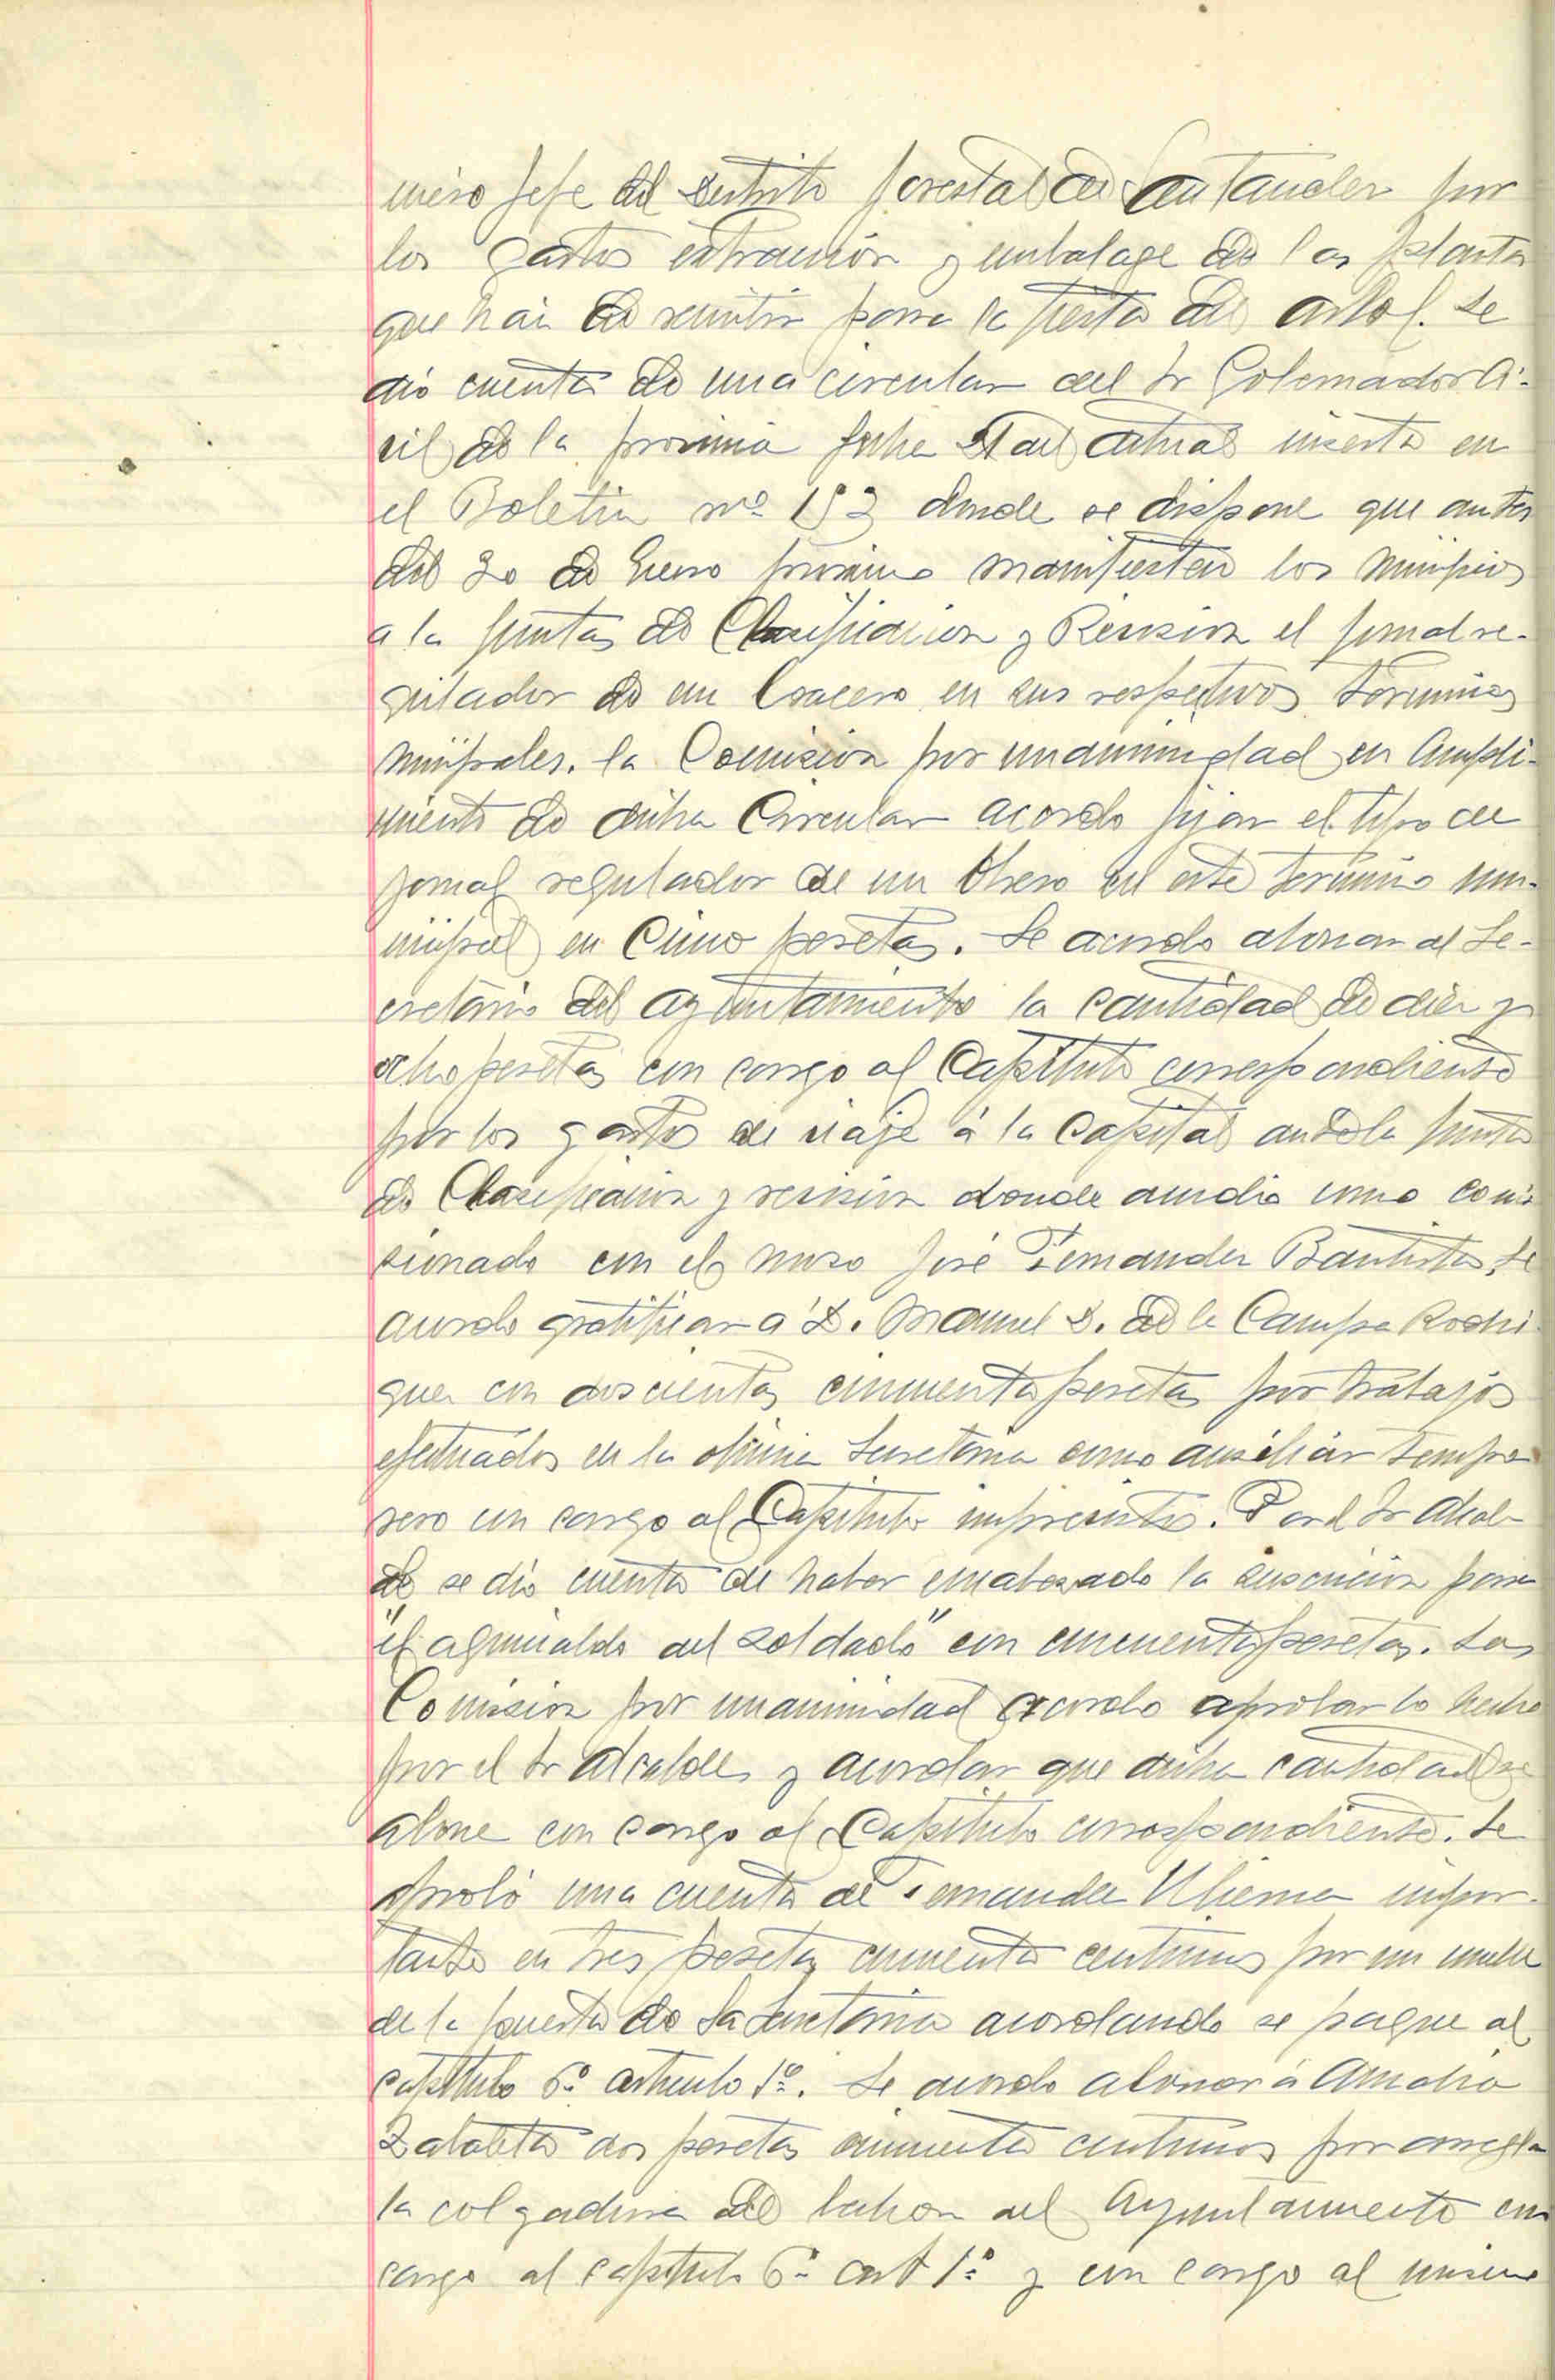 niero Jefe del Distrito forestal de Santander por
los gastos extracción y embalage de las plantas
que hai de remitir para la fiesta del arbol. Se
dió cuenta de una circular del Sr Gobernador Ci-
vil de la proxima fecha del actual inserta en
el Boletin nº 153 donde se dispone que antes
del 20 de Enero proximo manifiesten los Municipios
a la Junta de Clasificacion y Revision el jornal re-
gulador de un bracero en sus respectivos terminos
municipales. la Comision por unanimidad en cumpli-
miento de dicha Circular acordo fijar el tipo de
jornal regulador de un obrero en este termino mu-
nicipal en Cinco pesetas. Se acordo abonar al Se-
cretario del ayuntamiento la cantidad de diez y
ocho pesetas con cargo al Capitulo correspondiente
por los gastos de viaje á la Capital ante la Junta
de Clasificacion y revision donde acudio como comi-
sionado con el mozo José Fernandez Bautista. Se
acordo gratificar a D. Manuel D. de la Campa Rodri
guez con doscientas cincuenta pesetas por trabajos
efectuados en la oficina Secretaria como auxiliar tempo
rero con cargo al Capitulo imprevistos. Por el Sr Alcal-
de se dio cuenta de haber encabezado la suscricion para
"el aguinaldo del soldado" con cincuenta pesetas. La
Comision por unanimidad acordo aprobar lo hecho
por el Sr Alcalde y acordar que dicha cantidad se
abone con cargo al Capitulo correspondiente. Se
aprobó una cuenta de Fernandez impor-
tante en tres pesetas cincuenta centimos por un muelle
de la puerta de la Secretaria acordando se pague al
capitulo 6º articulo 1º. Se acordo abonar á Amalia
Zabaleta dos pesetas cincuenta centimos por arreglar
la colgadura del balcon del Ayuntamiento con
cargo al capitulo 6º art 1º y con cargo al mismo